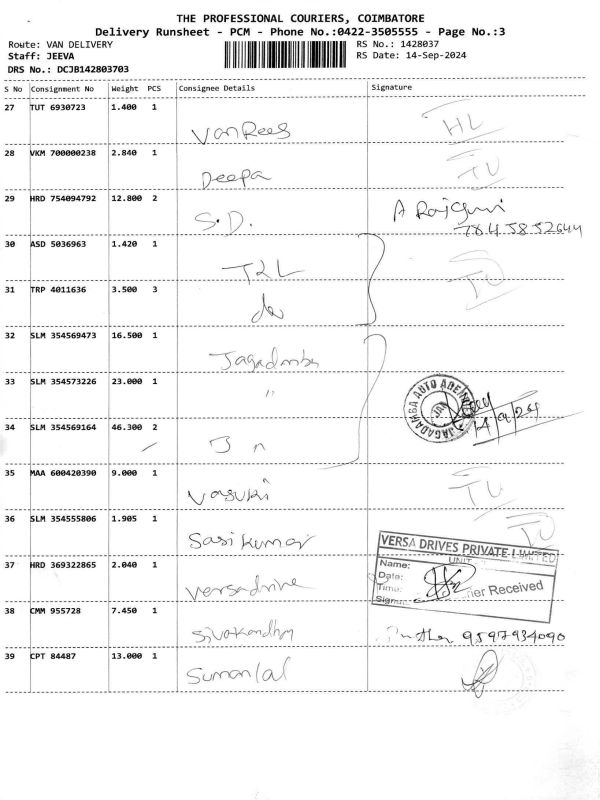 THE PROFESSIONAL COURIERS, COIMBATORE
Delivery Runsheet - PCM - Phone No.:0422-3505555 - Page No.:3
Route: VAN DELIVERY RS No.: 1428037
Staff: JEEVA RS Date: 14-Sep-2024
DRS No.: DCJB142803703
S No Consignment No Weight PCS Consignee Details Signature
27 TUT 6930723 1.400 1
VanRees HL
28 VKM 700000238 2.840 1
Deepa TU
29 HRD 754094792 12.800 2
S.D. A Rajguni
7845852644
30 ASD 5036963 1.420 1
TRL TU
31 TRP 4011636 3.500 3
do
32 SLM 354569473 16.500 1
Jagadmba
33 SLM 354573226 23.000 1
"
JAGADAMBA AUTO AGEN
14/9/24
34 SLM 354569164 46.300 2
J n
35 MAA 600420390 9.000 1
Vasuki TU
36 SLM 354555806 1.905 1
Sasikumar TU
VERSA DRIVES PRIVATE LIMITED
UNIT
37 HRD 369322865 2.040 1
Name:
Date:
Time:
Versadrive Received
38 CMM 955728 7.450 1
Sivakandhn 9597934090
39 CPT 84487 13.000 1
Sumanlal